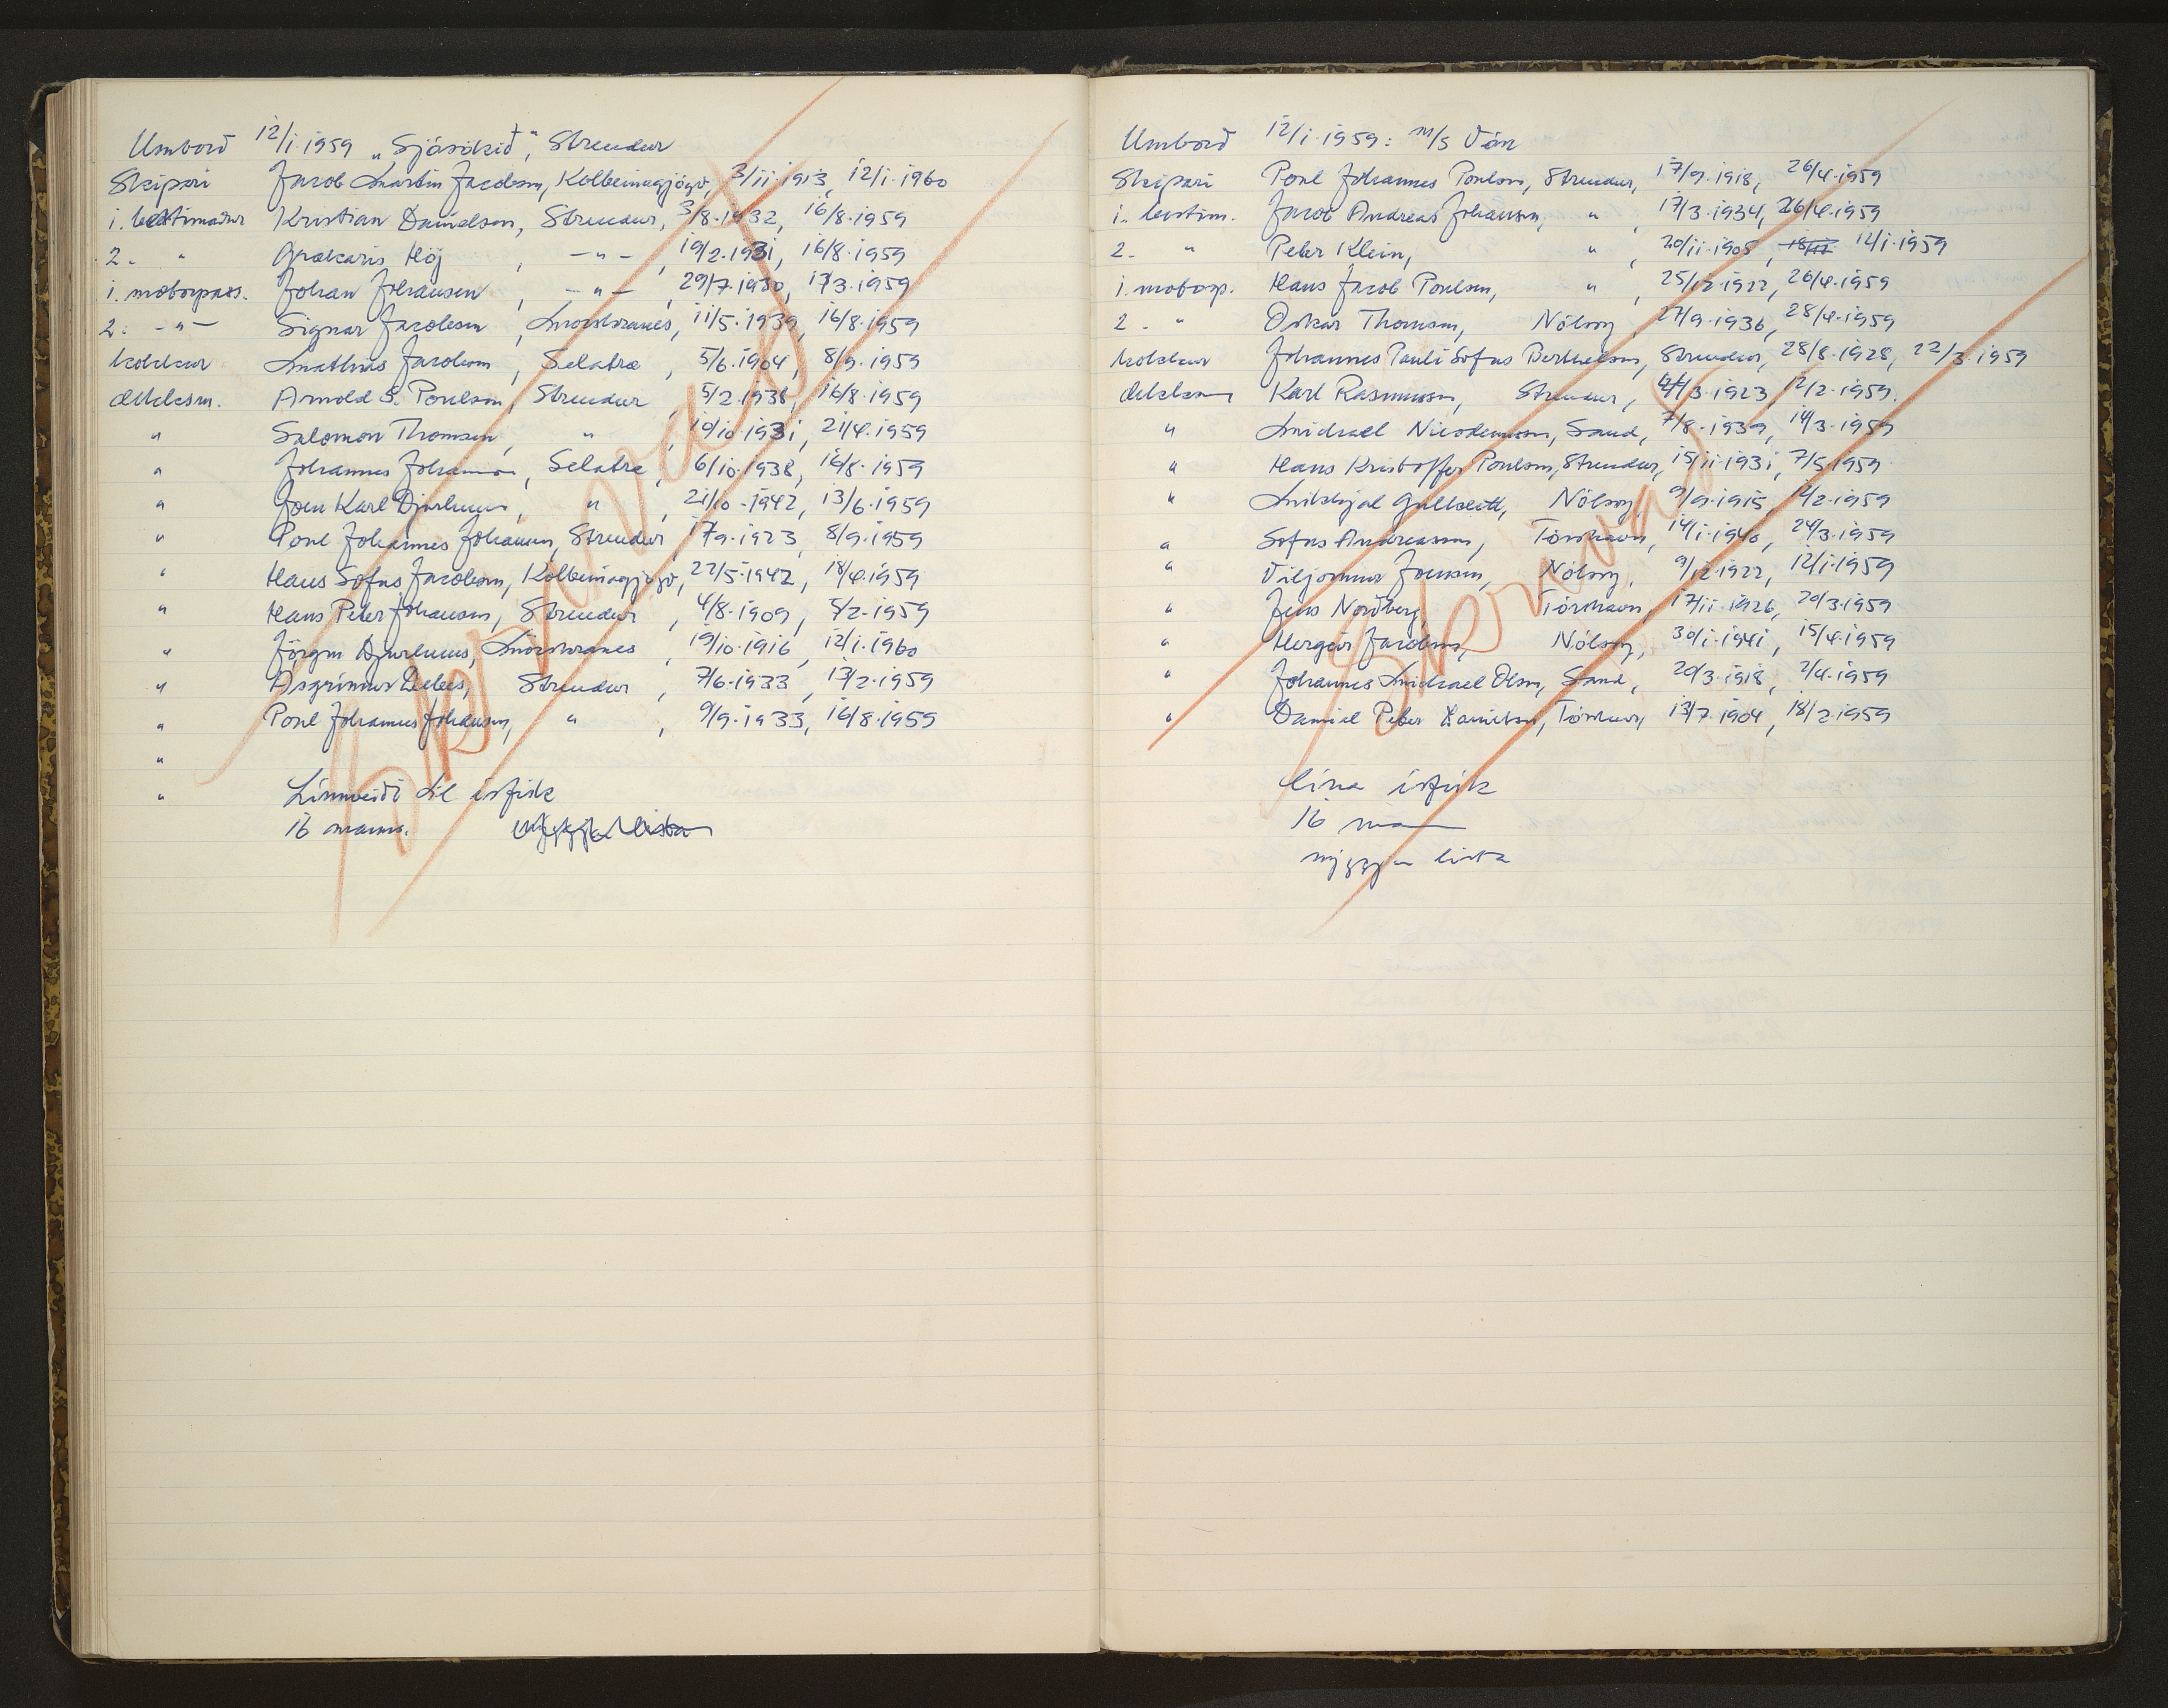 Umborð 12/1-1959 „Sjósókið", Strendur
Skipari Jacob Martin Jacobsen, Kolbeinagjógv, 3/11-1913, 12/1-1960
1. bestimaður Kristian Danielsen, Strendur, 3/8-1932, 16/8-1959
2. " Grækaris Höj, -"-, 19/2-1931, 16/8-1959
1. motorpass. Johan Johansen, -"-, 29/7-1930, 17/3-1959
2. -"- Signar Jacobsen, Morskranes, 11/5-1939, 16/8-1959
kokkur Mathias Jacobsen, Selatræ, 5/6-1904, 8/9-1959
dekksm. Arnold S. Poulsen, Strendur, 5/2-1938, 16/8-1959
" Salomon Thomsen, ", 10/10-1931, 21/4-1959
" Johannes Johansen, Selatræ, 6/10-1938, 16/8-1959
" Joen Karl Djurhuus, ", 21/10-1942, 13/6-1959
" Poul Johannes Johansen, Strendur, 17/9-1923, 8/9-1959
" Hans Sofus Jacobsen, Kolbeinagjógv, 22/5-1942, 18/4-1959
" Hans Peter Johansen, Strendur, 4/8-1909, 5/2-1959
" Jörgen Djurhuus, Morskranes, 19/10-1916, 12/1-1960
" Asgrimur Debes, Strendur, 7/6-1933, 17/2-1959
" Poul Johannes Johansen, ", 9/9-1933, 16/8-1959
"
" Línuveiði til ísfisk
16 manns.
Avmunstrað
Umborð 12/1-1959: m/s Vón
Skipari Poul Johannes Poulsen, Strendur, 17/9-1918, 26/4-1959
1. bestim. Jacob Andreas Johansen, ", 17/3-1934, 26/4-1959
2. " Peter Klein, ", 20/11-1905, 12/1-1959
1. motorp. Hans Jacob Poulsen, ", 25/12-1922, 26/4-1959
2. " Oskar Thomsen, Nólsoy, 27/9-1936, 28/4-1959
kokkur Johannes Pauli Sofus Berthelsen, Strendur, 28/8-1928, 22/3-1959
dekksm Karl Rasmussen, Strendur, 24/3-1923, 12/2-1959.
" Michael Nicodemussen, Sand, 7/8-1939, 14/3-1959
" Hans Kristoffer Poulsen, Strendur, 15/11-1931, 7/5-1959
" Mikkjal Gullklett, Nólsoy, 9/9-1915, 12/2-1959
" Sofus Andreassen, Tórshavn, 14/1-1940, 24/3-1959
" Viljormur Joensen, Nólsoy, 9/12-1922, 12/1-1959
" Jens Norðberg, Tórshavn, 17/11-1926, 20/3-1959
" Hergeir Jacobsen, Nólsoy, 30/1-1941, 15/4-1959
" Johannes Michael Olsen, Sand, 20/3-1918, 2/4-1959
" Daniel Peter Danielsen, Tórshavn, 13/7-1904, 18/2-1959
lína ísfisk
16 mann
nýggjan lista